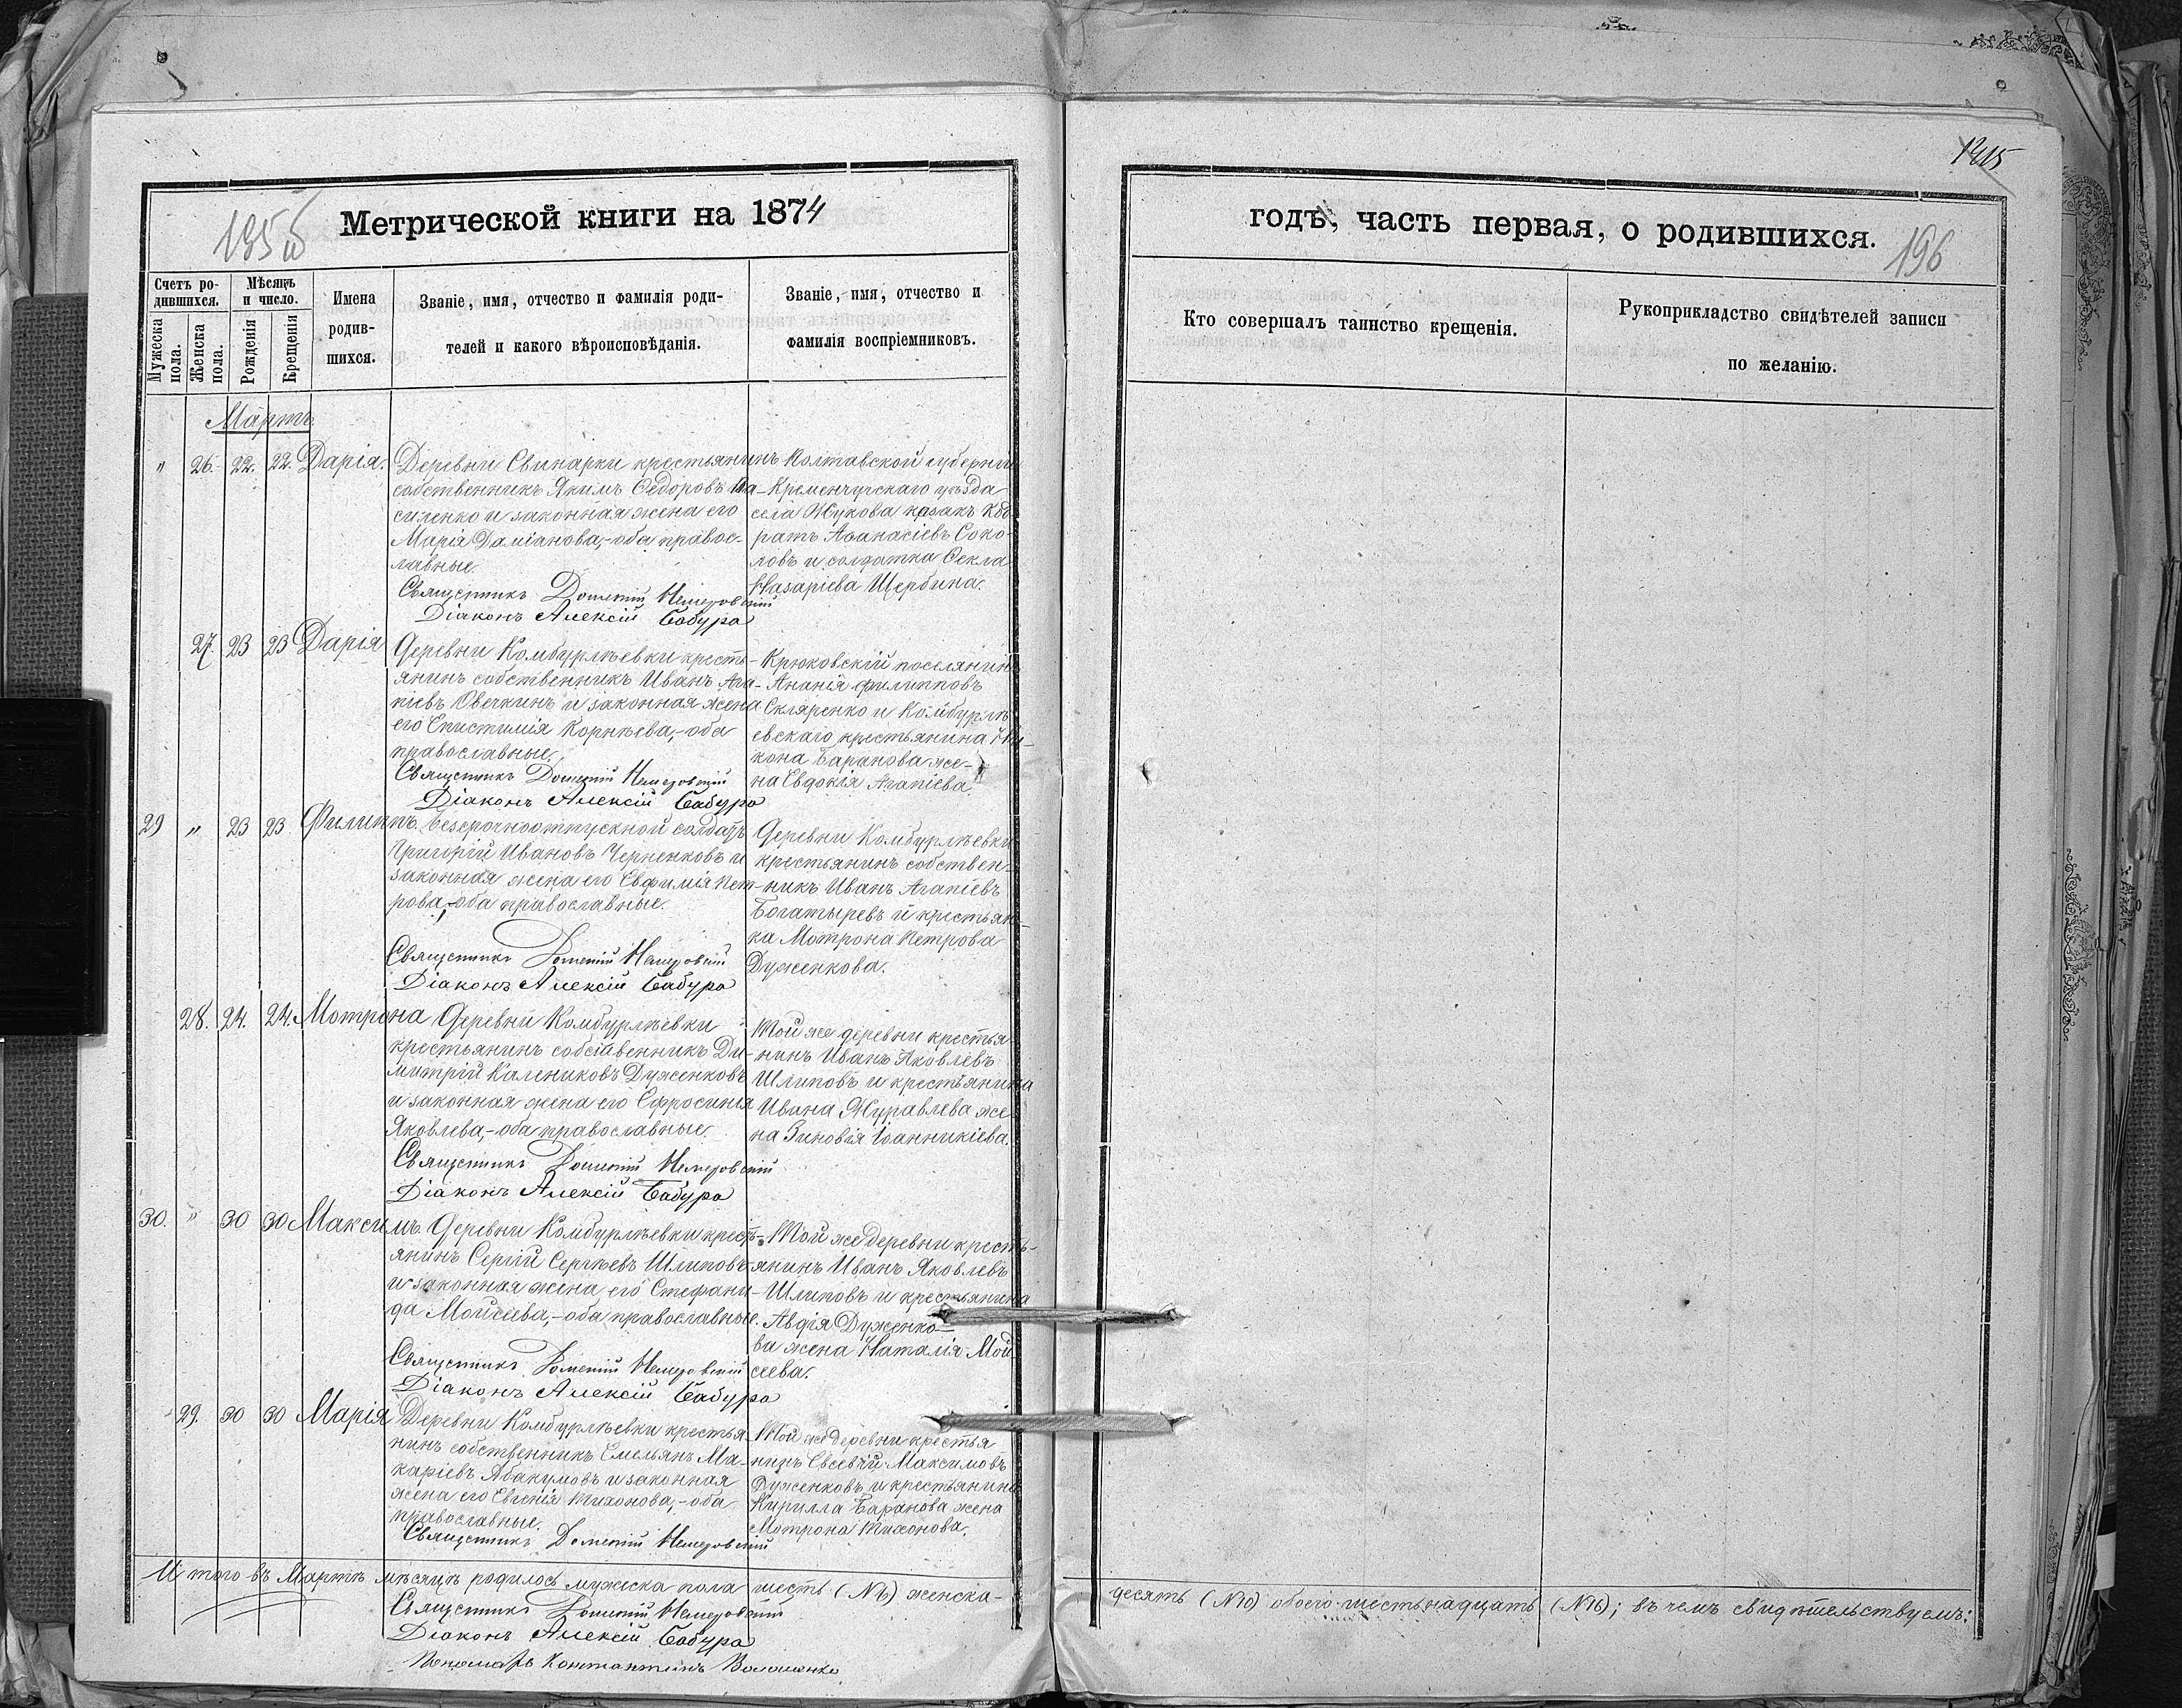 1215
195 об
Метрической книги на 1874
годъ, часть первая, о родившихся.
196
Счетъ родившихся.
Мужеска пола.
Женска пола.
Мѣсяцъ и число.
Рожденія
Крещенія
Имена родившихся.
Званіе, имя, отчество и фамилія роди-
телей и какого вѣроисповѣданія.
Званіе, имя, отчество и
фамилія воспріемниковъ.
Кто совершалъ таинство крещенія.
Рукоприкладство свидѣтелей записи
по желанію.
Мартъ
" 26. 22. 22. Дарія.
Деревни Свинарки крестьянинъ
собственникъ Якимъ Ѳедоровъ
и законная жена его
Марія Даміанова,- оба правос-
лавные.
Священникъ Дометій Немеровскій
Діаконъ Алексій Бабура
Полтавской губерніи
Кременчугскаго уѣзда
села Жукова казакъ Код-
ратъ Аѳанасіевъ Соко-
ловъ и солдатка Ѳекла
Назаріева Щербина.
27. 23 23 Дарія
Деревни Комбурлѣевки кресть-
янинъ собственникъ Иванъ Ага-
піевъ Овечкинъ и законная жена
его Епистимія Корнѣева,- оба
православные.
Священникъ Дометій Немеровскій
Діаконъ Алексій Бабура
Крюковскій поселянинъ
Ананія Филипповъ
Скляренко и Комбурлѣ-
евскаго крестьянина Ни-
кона Баранова же-
на Евдокія Агапіева.
29 " 23 23 Филиппъ.
Безсрочноотпускной солдатъ
Григорій Ивановъ Черненковъ и
законная жена его Евфимія Пет-
рова,- оба православные.
Священникъ Дометій Немеровскій
Діаконъ Алексій Бабура
Деревни Комбурлѣевки
крестьянинъ собствен-
никъ Иванъ Агапіевъ
Богатыревъ и крестьян-
ка Мотрона Петрова
Дуженкова.
28. 24. 24. Мотрона
Деревни Комбурлѣевки
крестьянинъ собственникъ Ди-
митрій Калениковъ Дуженковъ
и законная жена его Ефросинія
Яковлева,- оба православные.
Священникъ Дометій Немеровскій
Діаконъ Алексій Бабура
Той же деревни крестья-
нинъ Иванъ Яковлевъ
Шлиповъ и крестьянина
Ивана Журавлева же-
на Зиновія Іоанникіева.
30. " 30 30 Максимъ.
Деревни Комбурлѣевки кресть-
янинъ Сергій Сергѣевъ Шлиповъ
и законная жена его Стефани-
да Моисеева,- оба православные.
Священникъ Дометій Немеровскій
Діаконъ Алексій Бабура
Той же деревни кресть-
янинъ Иванъ Яковлевъ
Шлиповъ и крестьянина
Авдія Дуженко-
ва жена Наталія Мои-
сеева.
29. 30 30 Марія
Деревни Комбурлѣевки крестья-
нинъ собственникъ Емельянъ Ма-
каріевъ Абакумовъ и законная
жена его Евгенія Тихонова,- оба
православные.
Священникъ Дометій Немеровскій
Той же деревни крестья-
нинъ Евсевій Максимовъ
Дуженковъ и крестьянина
Кирилла Баранова жена
Мотрона Тихонова.
Итого въ Мартѣ мѣсяцѣ родилось мужеска пола шесть (№6) женска-
десять (№10) обоего шестьнадцать (№16); въ чемъ свидѣтельствуемъ:
Священникъ Дометій Немеровскій
Діаконъ Алексій Бабура
Пономарь Константинъ Волошенко